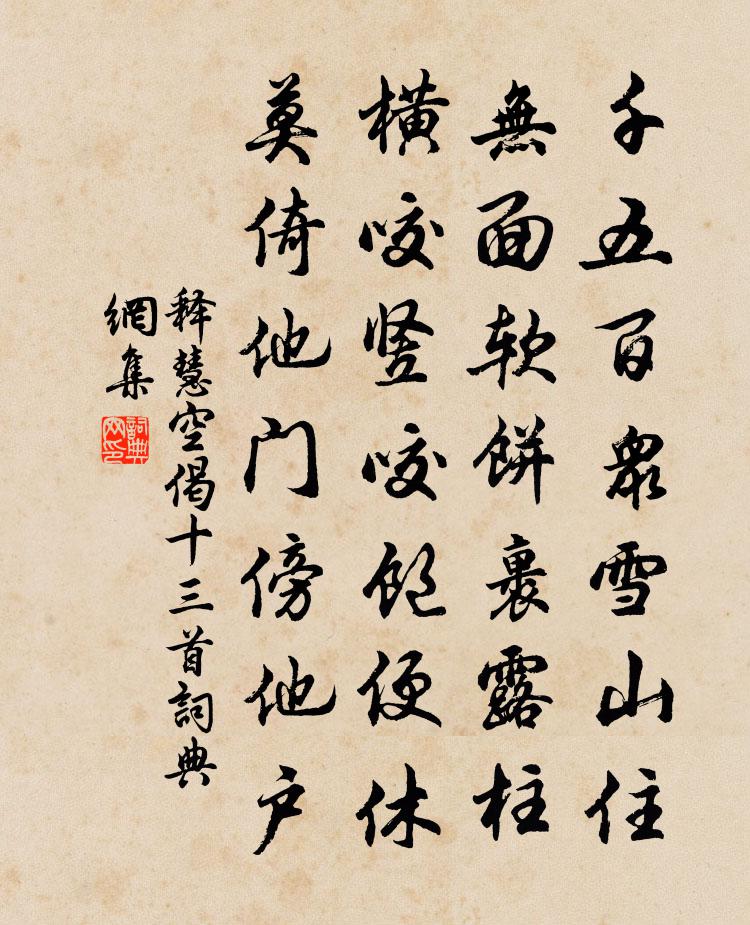 千五百眾雪山住
無面軟餅裹露柱
橫咬竖咬飽便休
莫倚他門傍他户
释慧空偈十三首詞典
網集
詞典
网印